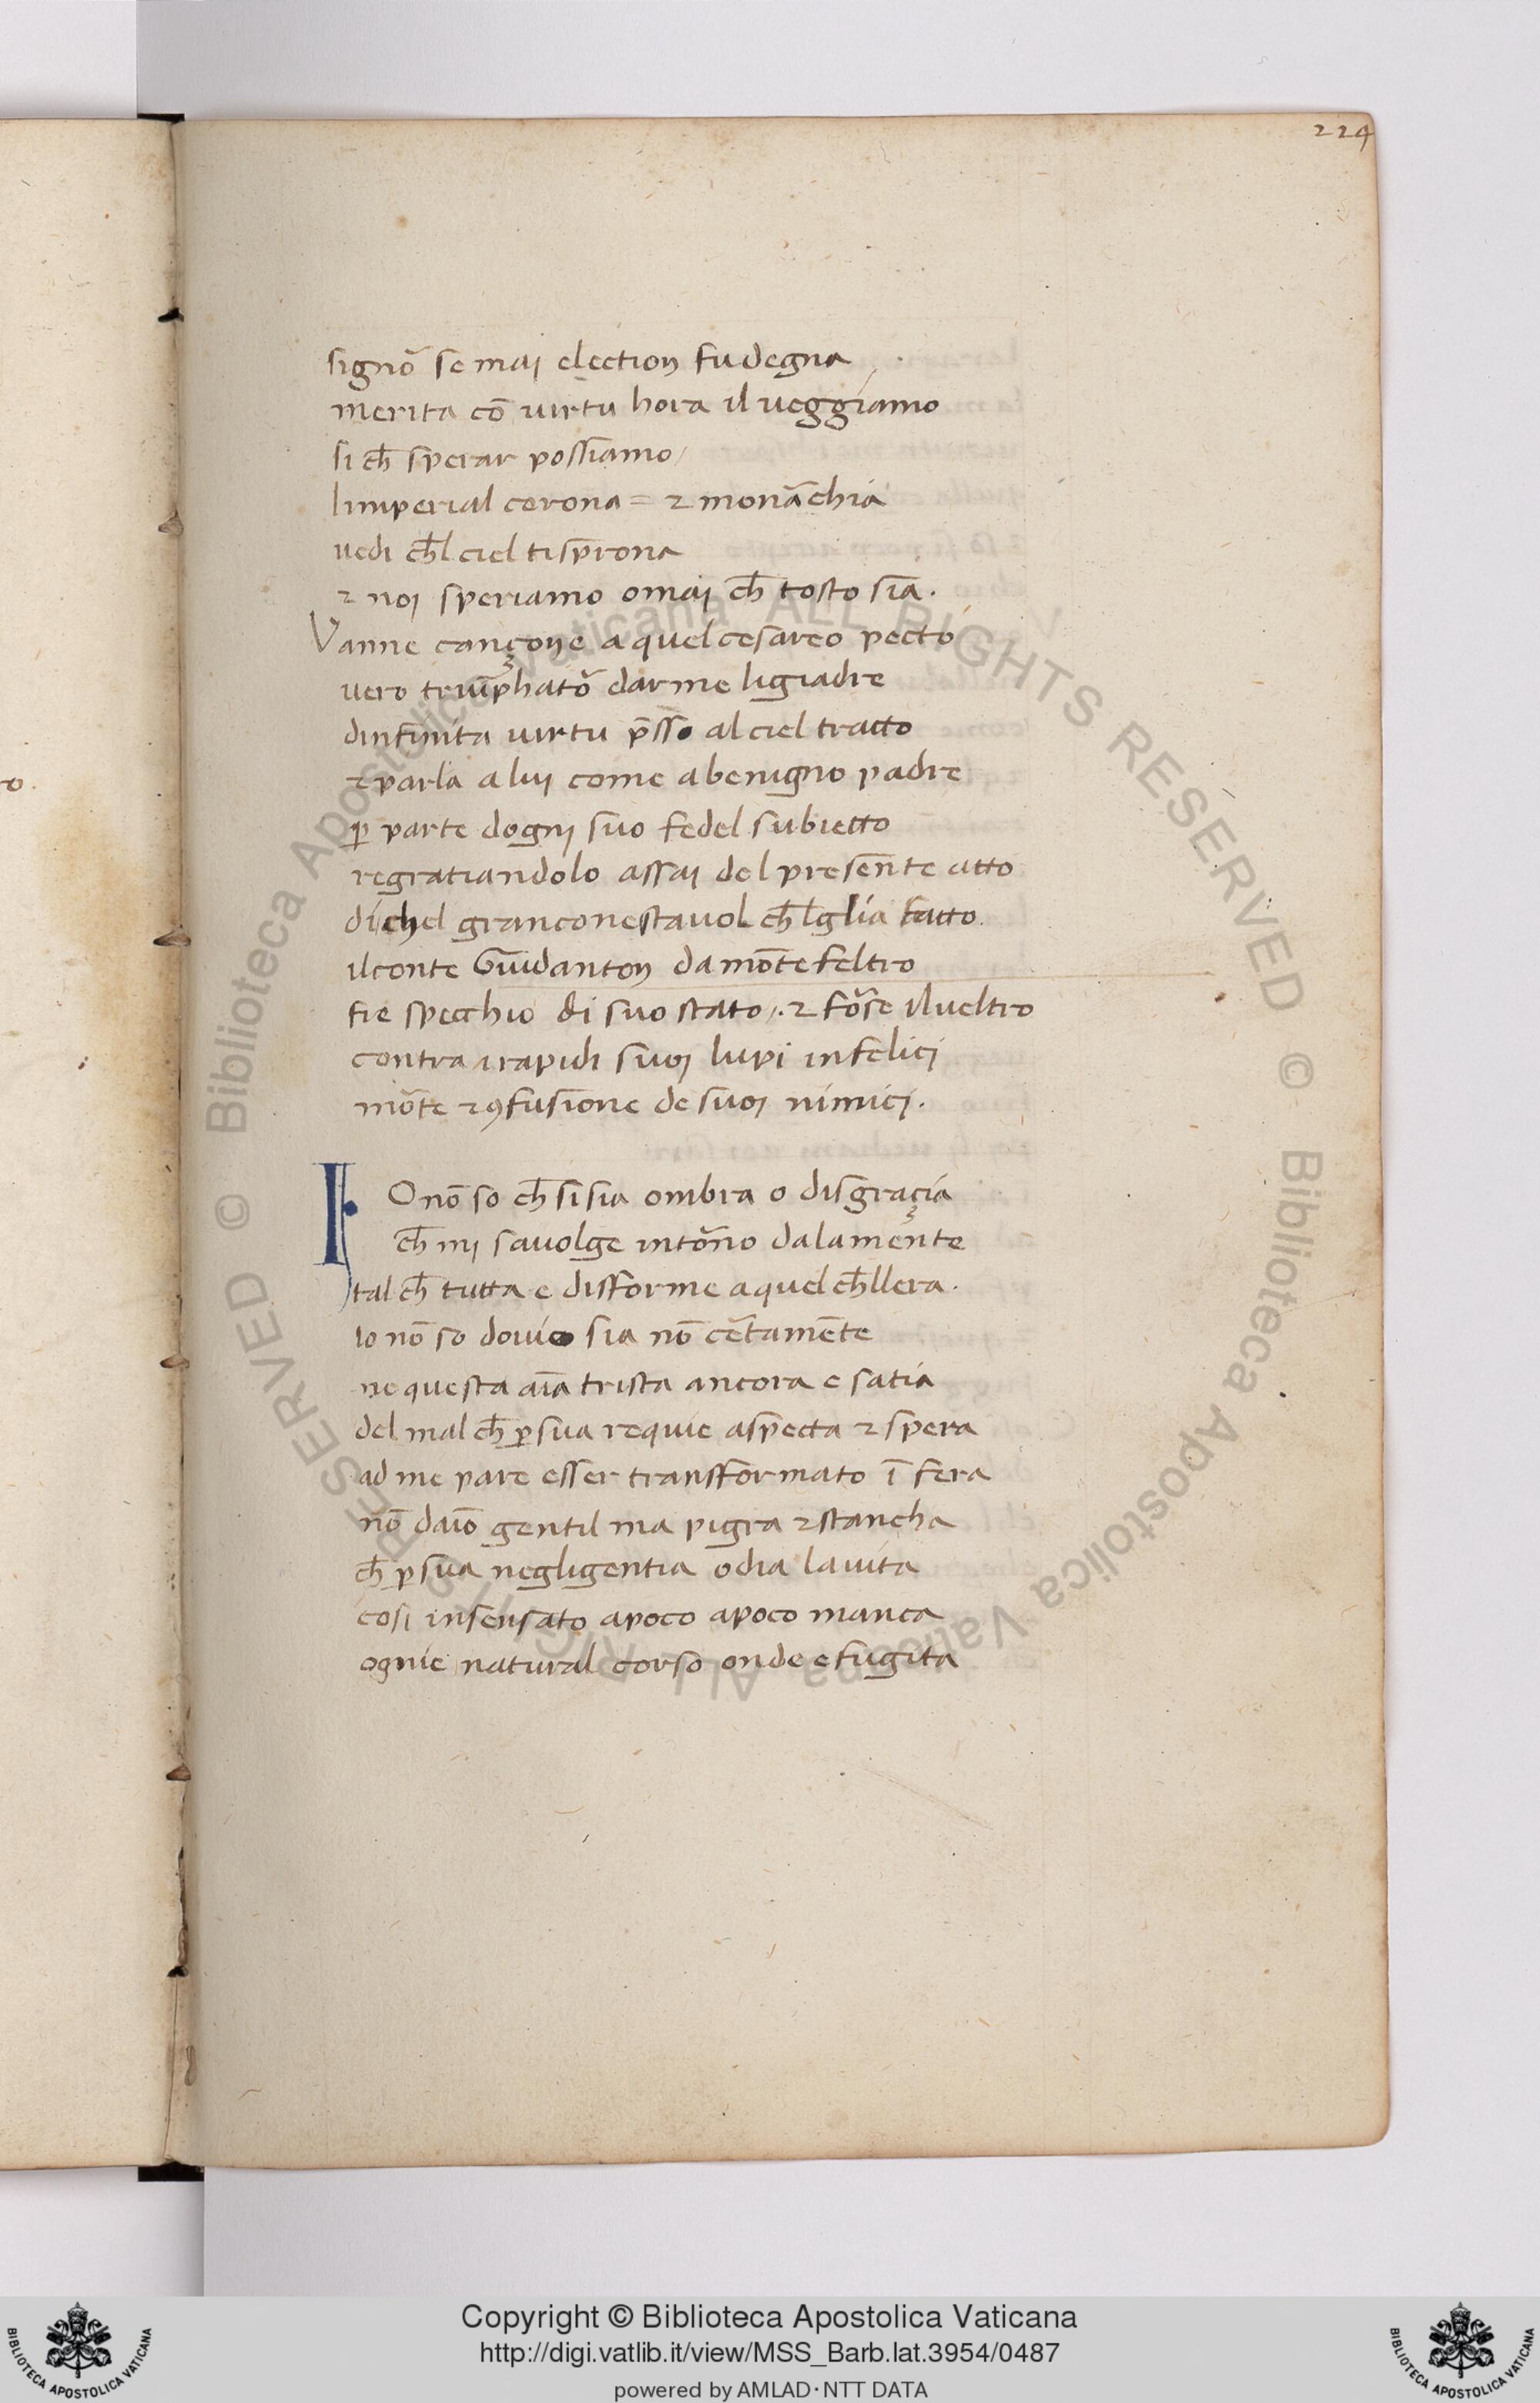 224
signō se maj election fu degna
merita cō uirtu hora il ueggiamo
si ch̄ sperar possiamo
limperial corona = ⁊ monāchia
uedi ch̄l ciel ti sp̄rona
⁊ noj speriamo omaj ch̄ tosto sia.
Vanne cançone a quel cesareo pecto
uero triūphatō darme ligiadre
dinfinita uirtu p̄sso al ciel tracto
⁊ parla a luj come a benigno padre
ꝑ parte dognj suo fedel subietto
regratiandolo assaj del presente atto
di chel gran conestauol ch̄ lglia fatto
il conte Guidanton da mōtefeltro
fie specchio di suo stato. ⁊ fōse il ueltro
contra i rapidi suoj lupi infelicj
mōte ⁊ ꝯfusione de suoj nimicj.
IO nō so ch̄ si sia ombra o disgraçia
ch̄ mj sauolge intōno dala mente
tal ch̄ tutta e disforme a quel ch̄llera.
Io nō so doue sia nō cētamēte
ne questa aīa trista ancora e satia
del mal ch̄ ꝑ sua requie aspecta ⁊ spera
ad me pare esser transformato ī fera
nō daīo gentil ma pigra ⁊ stancha
ch̄ ꝑ sua negligentia odia la uita
cosi insensato apoco apoco manca
ognie natural corso onde e fugita
ro.
Biblioteca Apostolica Vaticana ALL RIGHTS RESERVED ©
Biblioteca Apostolica Vaticana ALL RIGHTS RESERVED ©
Copyright © Biblioteca Apostolica Vaticana
http://digi.vatlib.it/view/MSS_Barb.lat.3954/0487
powered by AMLAD·NTT DATA
BIBLIOTECA APOSTOLICA VATICANA
BIBLIOTECA APOSTOLICA VATICANA